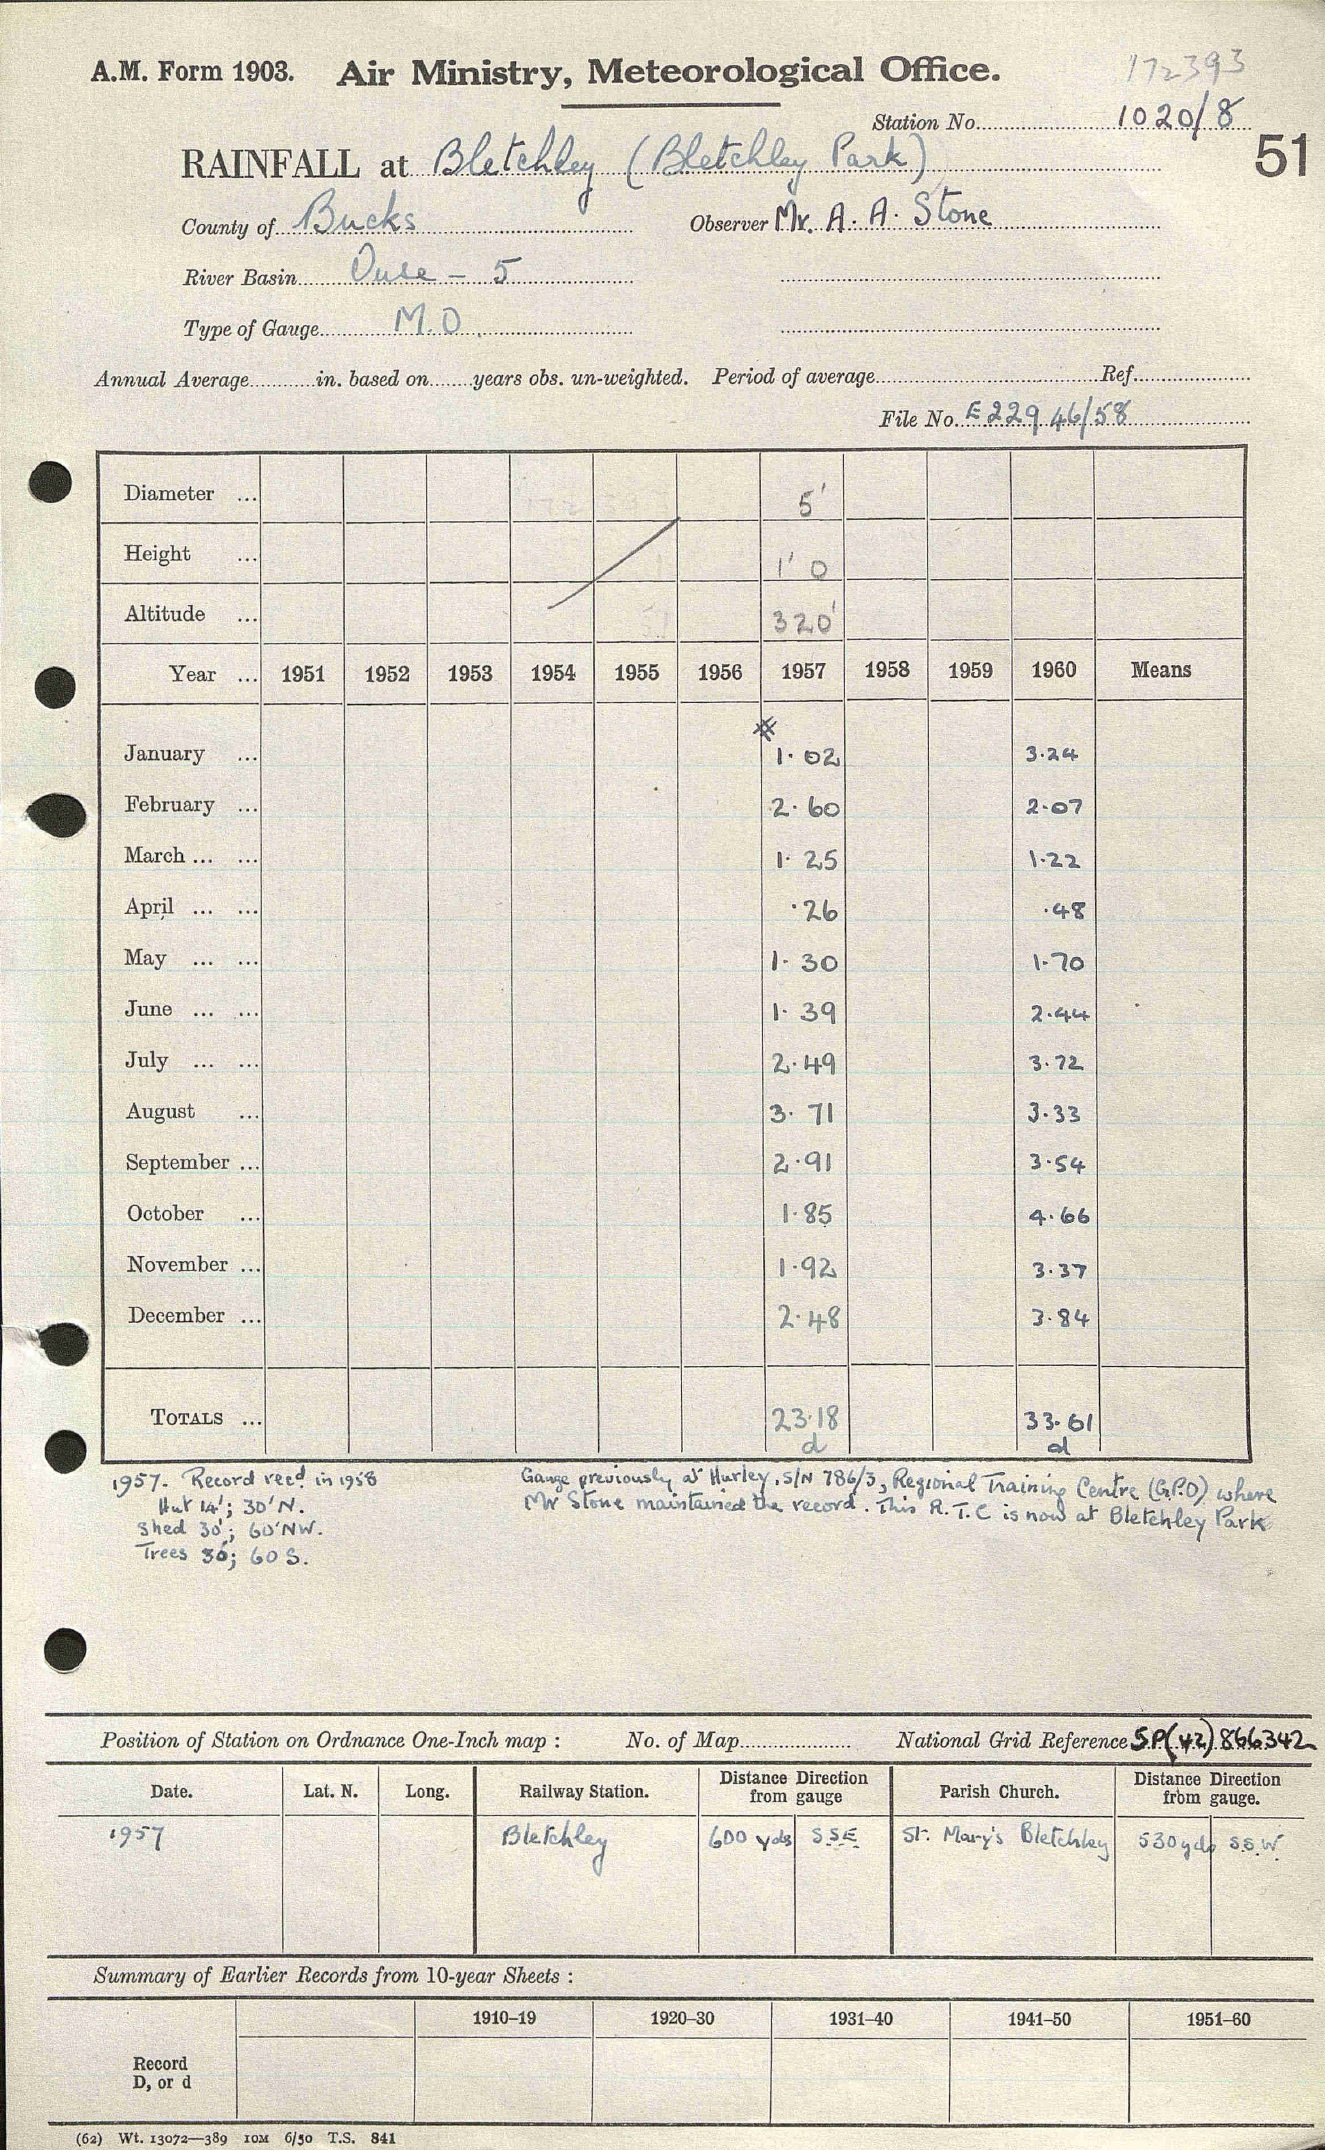 A.M. Form 1903. Air Ministry, Meteorological Office.
172393
Station No. 1020/8
51
RAINFALL at Bletchley (Bletchley Park)
County of Bucks Observer Mr. A. A. Stone
River Basin Ouse - 5
Type of Gauge M.O.
Annual Average in. based on years obs. un-weighted. Period of average Ref.
File No. E22946/58
Diameter ... 5'
Height ... 1' 0
Altitude ... 320'
Year ... 1951 1952 1953 1954 1955 1956 1957 1958 1959 1960 Means
January ... 1.02 3.24
February ... 2.60 2.07
March ... ... 1.25 1.22
April ... ... .26 .48
May ... ... 1.30 1.70
June ... ... 1.39 2.44
July ... ... 2.49 3.72
August ... 3.71 3.33
September ... 2.91 3.54
October ... 1.85 4.66
November ... 1.92 3.37
December ... 2.48 3.84
TOTALS ... 23.18 33.61
d d
1957. Record recd. in 1958
Hut 14'; 30'N.
Shed 30'; 60'NW.
Trees 30'; 60 S.
Gauge previously at Hurley, S/N 786/3, Regional Training Centre (G.P.O) where
Mr Stone maintained the record. This R.T.C is now at Bletchley Park
Position of Station on Ordnance One-Inch map : No. of Map National Grid Reference SP(42)866342
Date. Lat. N. Long. Railway Station. Distance Direction from gauge Parish Church. Distance Direction from gauge.
1957 Bletchley 600 yds S.S.E. St. Mary's Bletchley 530 yds S.S.W.
Summary of Earlier Records from 10-year Sheets :
1910–19 1920–30 1931–40 1941–50 1951–60
Record
D, or d
(62) Wt. 13072—389 10M 6/50 T.S. 841